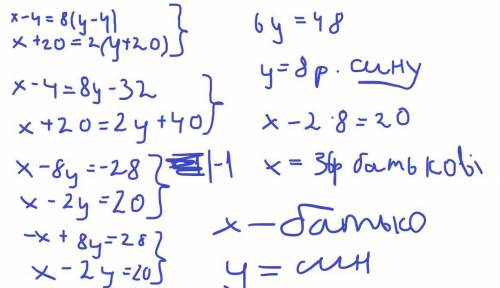 x-4=8(y-4)
x+20=2(y+20)
x-4=8y-32
x+20=2y+40
x-8y=-28 |-1
x-2y=20
-x+8y=28
x-2y=20
6y=48
y=8р. сину
x-2·8=20
x=36р батькові
x-батько
y=син